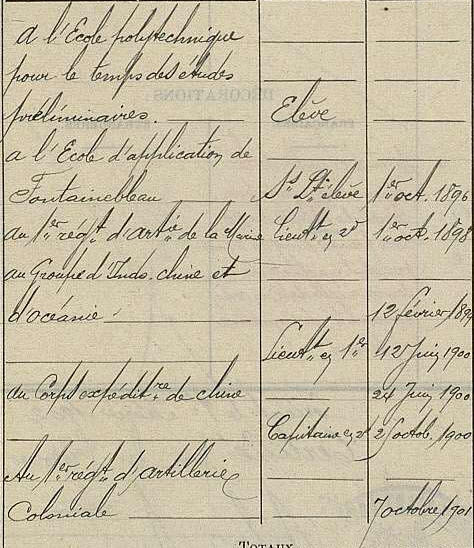 a l'Ecole polytechnique
pour le temps des études
préliminaires. Elève
a l'Ecole d'application de
Fontainebleau Ss Lt élève 1er oct. 1896
au 1er regt d'artie de la Marine Lieutt en 2d 1er oct. 1898
au Groupe d'Indo-chine et
d'océanie 12 février
Lieutt en 1er 12 Juin 1900
au Corps expéditre de chine 24 Juin 1900
Capitaine en 2d octob. 1900
Au 1er regt d'artillerie
Coloniale 7 octobre 1901
TOTAUX